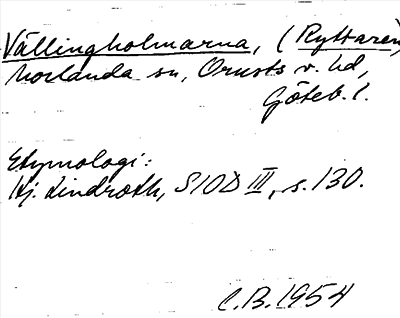 Vällingholmarna, (Ryttaren)
Morlanda sn, Orusts v. hd,
Göteb. l.
Etymologi:
Hj. Lindroth, SIOD III, s. 130.
C.B. 1954